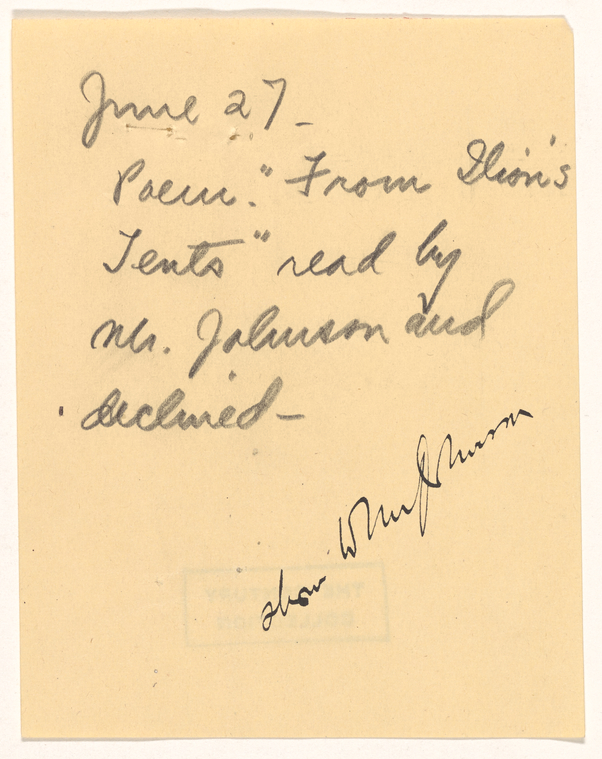 June 27 –
Poem. "From Ilion's
Tents" read by
Mr. Johnson and
declined –
show Johnson